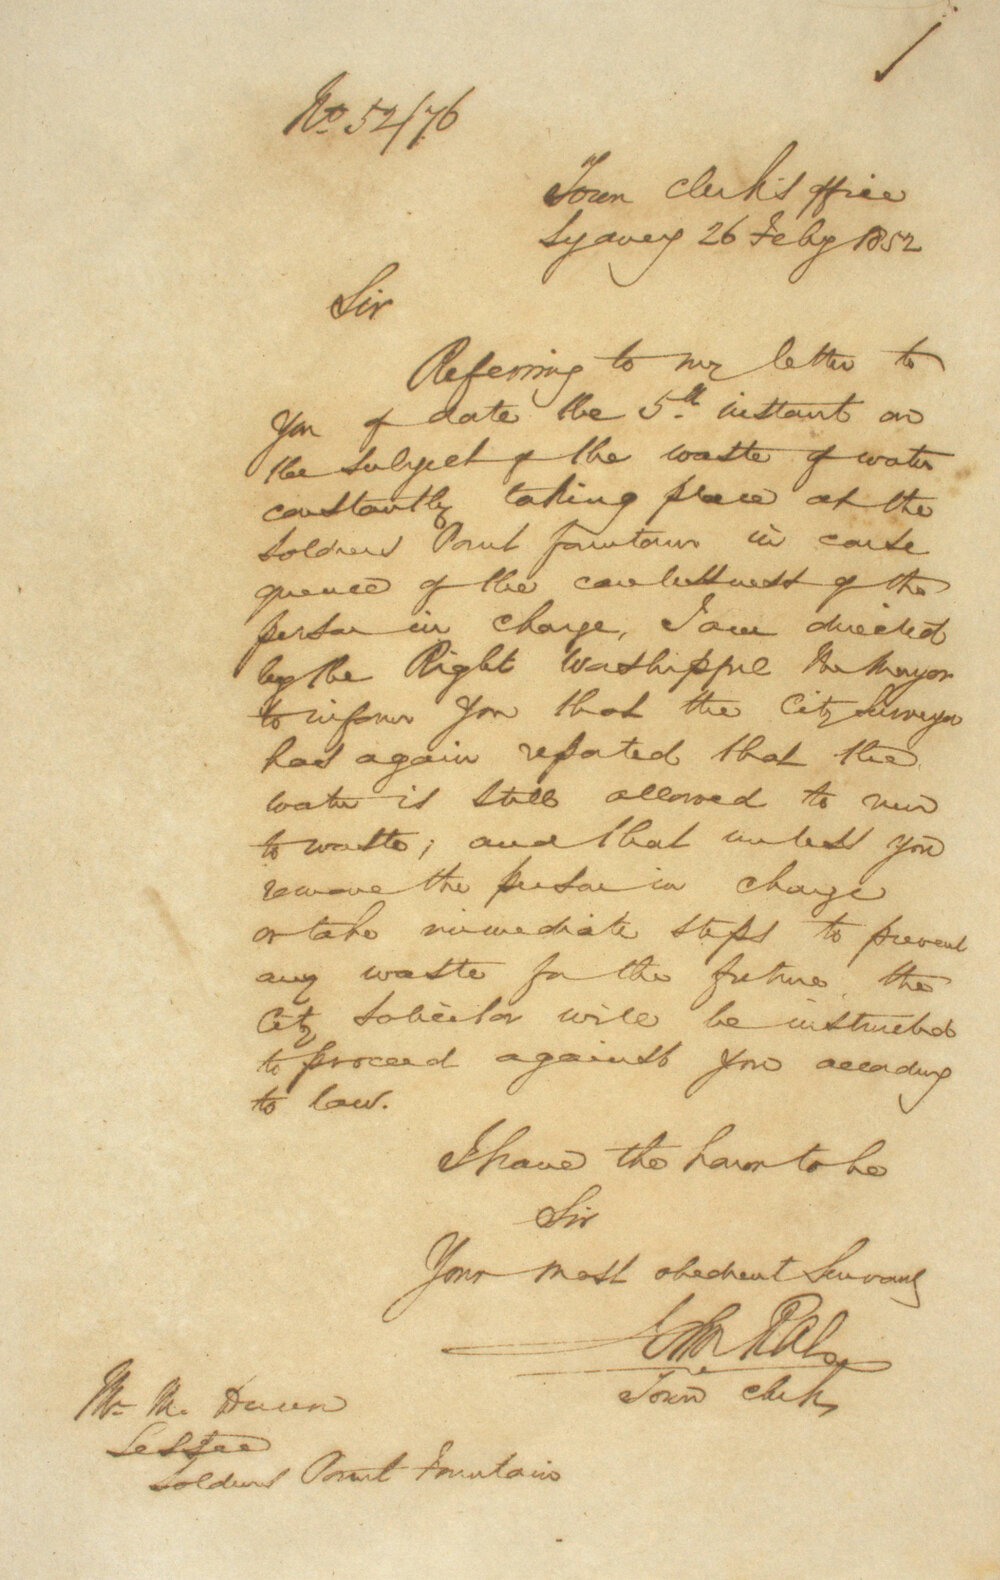 No 52/76
Town Clerk's Office
Sydney 26 Feby 1852
Sir
Referring to my letter to
you of date the 5th instant on
the subject of the waste of water
constantly taking place at the
Soldiers Point fountain in conse
quence of the carelessness of the
person in charge, I am directed
by the Right Worshipful the Mayor
to inform you that the City Surveyor
has again reported that the
water is still allowed to run
to waste; and that unless you
remove the person in charge
or take immediate steps to prevent
any waste for the future, the
City Solicitor will be instructed
to proceed against you according
to law.
I have the honor to be
Sir
Your most obedient Servant
John Rae
Town Clerk
Mr M.
Lessee
Soldiers Point Fountain